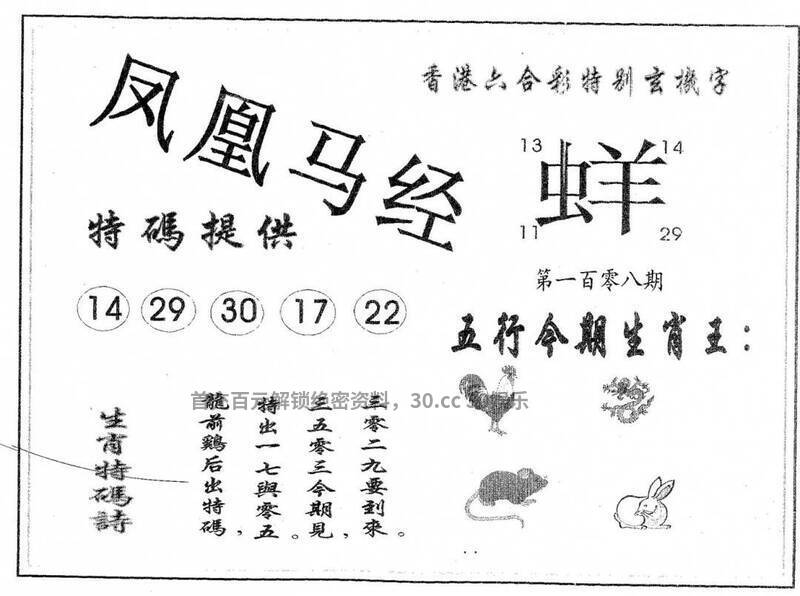 凤凰马经
香港六合彩特别玄機字
13 14
蛘
11 29
特碼提供
第一百零八期
14 29 30 17 22
五行今期生肖王：
生肖特碼詩
龍前鷄后出特碼，
特出一七與零五。
三五零三今期見，
三零二九要到來。
百元解锁绝密资料，30.cc 娱乐